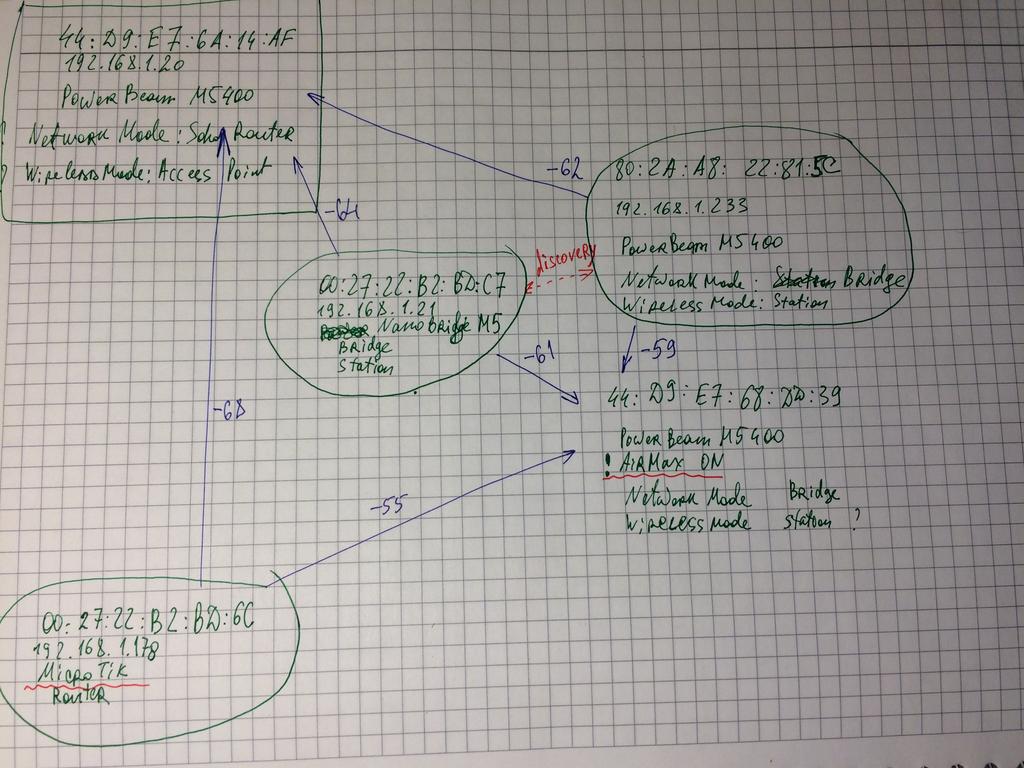 44:D9:E7:6A:14:AF
192.168.1.20
PowerBeam M5400
Network Mode: Soho Router
Wireless Mode: Access Point
-62
80:2A:A8:22:81:5C
192.168.1.233
PowerBeam M5400
Network Mode: Station Bridge
Wireless Mode: Station
-64
discovery
00:27:22:B2:BD:C7
192.168.1.21
NanoBridge M5
Bridge
Station
-61
-59
44:D9:E7:68:DD:39
PowerBeam M5400
! AirMax ON
Network Mode Bridge
Wireless mode station ?
-68
-55
00:27:22:B2:BD:6C
192.168.1.178
MicroTik
Router